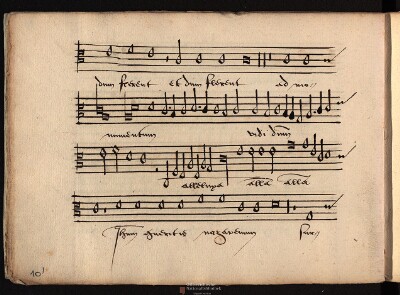 dum flerent et dum flerent ad mo//
numentum vidi dnm
alleluya alla alla
Jhum queritis nazarenum sur//
10